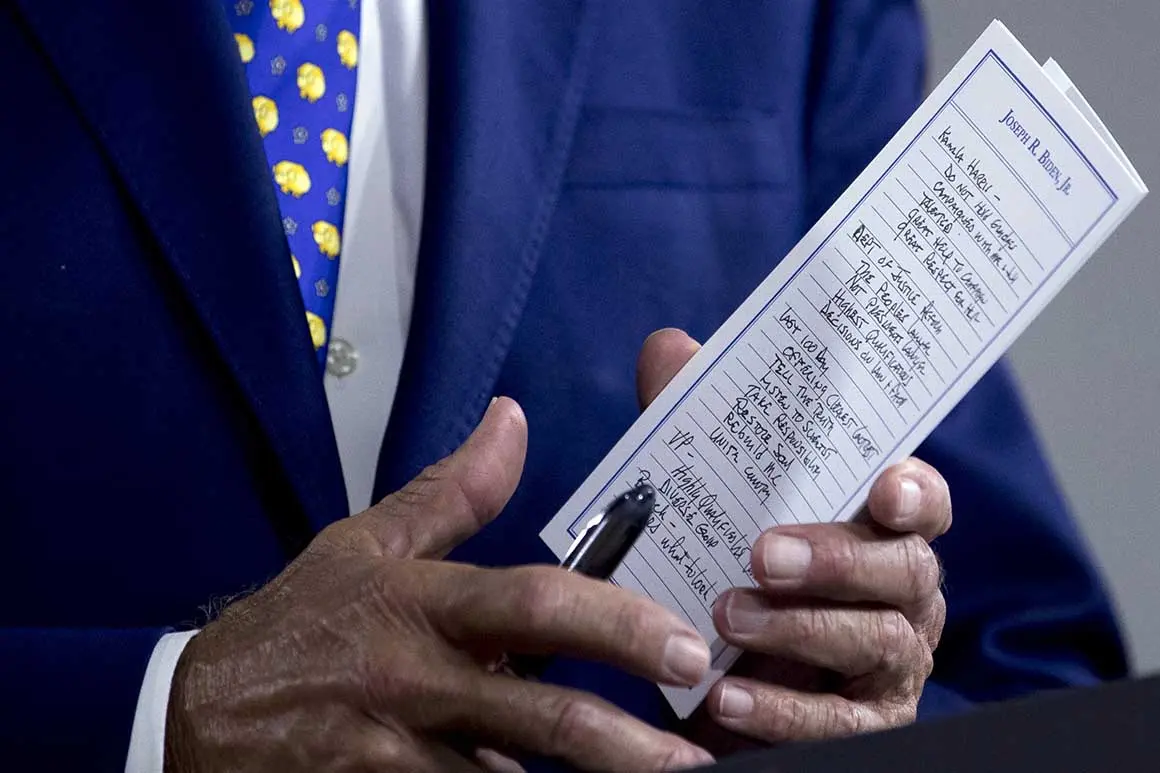 JOSEPH R. BIDEN, JR.
KAMALA HARRIS -
DO NOT HOLD GRUDGES
CAMPAIGNED WITH ME & JILL
TALENTED
GREAT HELP TO CAMPAIGN
GREAT RESPECT FOR HER
DEPT OF JUSTICE
THE PEOPLES LAWYER
NOT PRESIDENTS LAWYER
HIGHEST QUALIFICATIONS
DECISIONS ON LAW & FACT
LAST 100 DAY
OFFERING CLEAREST CONTRAST
TELL THE TRUTH
LISTEN TO SCIENTIST
TAKE RESPONSIBILITY
RESTORE SOUL
REBUILD MC
UNITE COUNTRY
VP - HIGHLY QUALIFIED
DIVERSE GROUP
WHAT TO LOOK